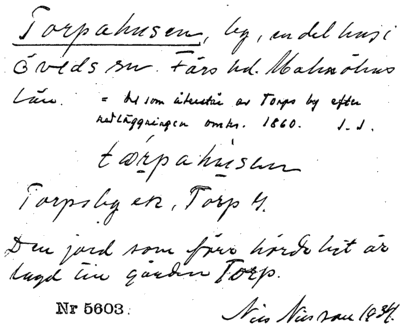 Torpahusen, by, en del hus i
Öveds sn. Färs hd. Malmöhus
län. = det som återstår av Torps by efter
nedläggningen omkr. 1860. I. I.
tǫrpahusen
Torpsby en, Torp 4.
Den jord som förr hörde hit är
lagd till gården Torp.
Nr 5603.
Nils Nilsson 1934.